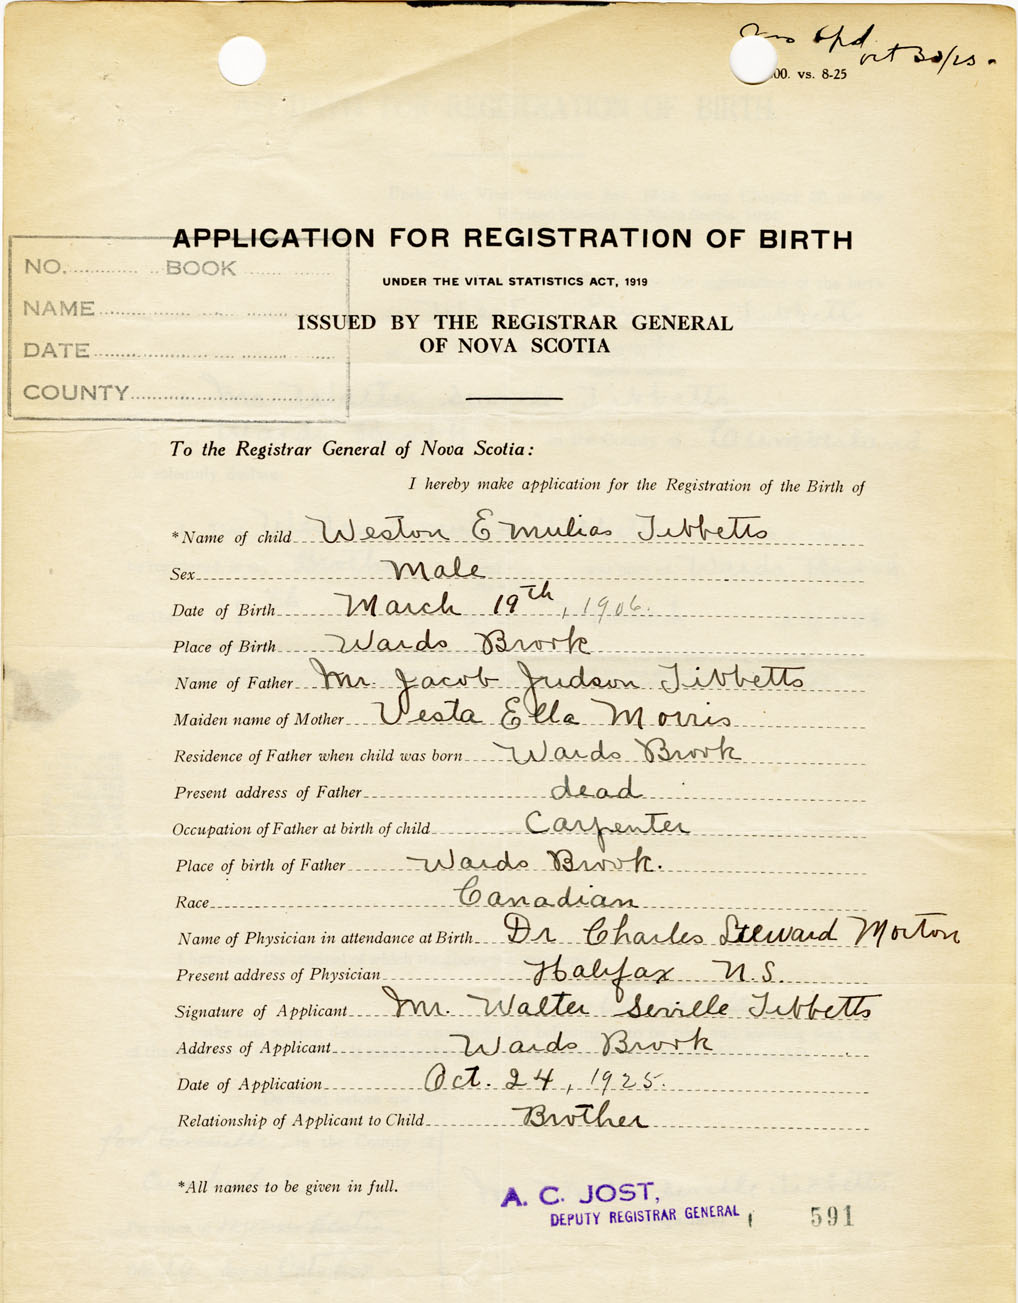 Oct 30/25.
00. vs. 8-25
APPLICATION FOR REGISTRATION OF BIRTH
NO. BOOK
NAME
DATE
COUNTY
UNDER THE VITAL STATISTICS ACT, 1919
ISSUED BY THE REGISTRAR GENERAL
OF NOVA SCOTIA
To the Registrar General of Nova Scotia:
I hereby make application for the Registration of the Birth of
*Name of child Weston Emulias Tibbetts
Sex Male
Date of Birth March 19th, 1906.
Place of Birth Wards Brook
Name of Father Mr. Jacob Judson Tibbetts
Maiden name of Mother Vesta Ella Morris
Residence of Father when child was born Wards Brook
Present address of Father dead
Occupation of Father at birth of child Carpenter
Place of birth of Father Wards Brook.
Race Canadian
Name of Physician in attendance at Birth Dr Charles Steward Morton
Present address of Physician Halifax N.S.
Signature of Applicant Mr. Walter Seville Tibbetts
Address of Applicant Wards Brook
Date of Application Oct. 24, 1925.
Relationship of Applicant to Child Brother
*All names to be given in full.
A. C. JOST,
DEPUTY REGISTRAR GENERAL
591